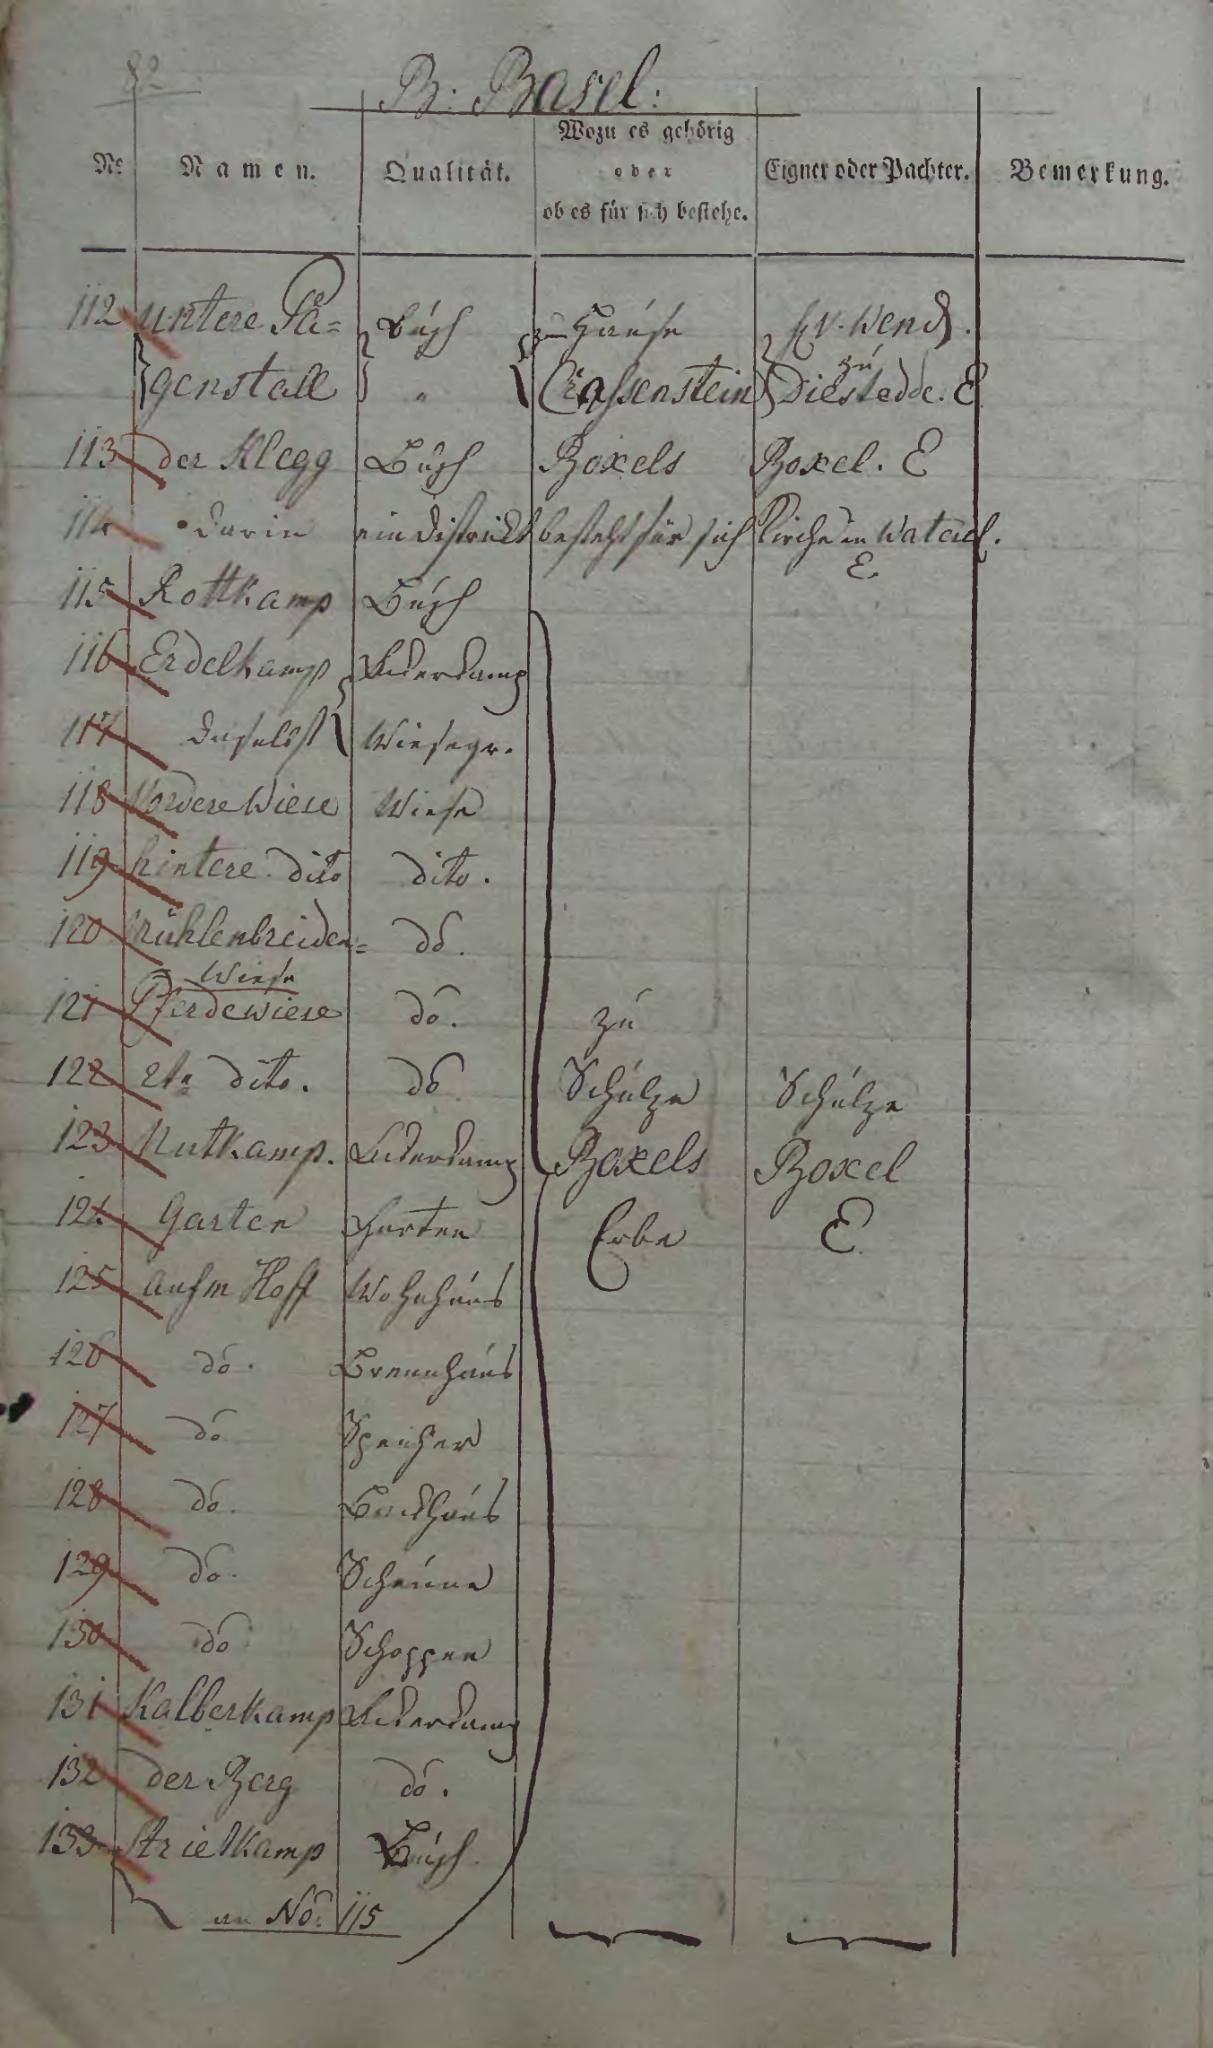 8
B: Basel:
No Namen. Qualität. Wozu es gehörig oder ob es für sich bestehe. Eigner oder Pachter. Bemerkung.
112 untere Pä= Busch zum Hause H. v. Wend
genstall " Crassenstein zu Diestedde. E
113 der Klegg Busch Boxels Boxel. E
114 darin ein district besteht für sich Kirche in Waters.
E.
115 Rottkamp Busch
116 Erdelkamp Ackerkamp
117 daselbst Wiesegr.
118 Vordere Wiese Wiese
119 hintere dito dito.
120 Mühlenbreiden= do.
Wiese
121 Pferdewiese do. zu
122 2te dito. do Schulze Schulze
123 Nutkamp. Ackerkamp Boxels Boxel
124 Garten Garten Erbe E
125 aufm Hoff Wohnhaus
126 do. Brennhaus
127 do Speicher
128 do. Backhaus
129 do. Scheune
130 do Schoppen
131 Kalberkamp Ackerkamp
132 der Berg do.
133 Strietkamp Busch
an No. 115